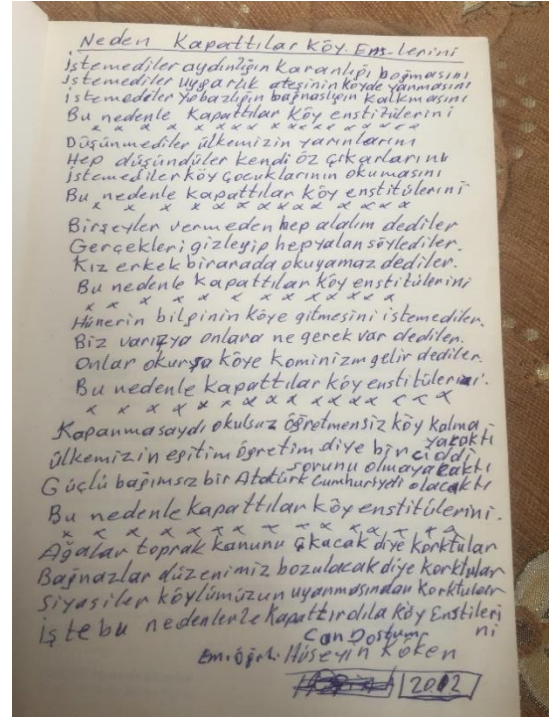 Neden Kapattılar Köy-Ens-lerini
İstemediler aydınlığın karanlığı boğmasını
İstemediler uygarlık ateşinin köyde yanmasını
İstemediler yobazlığın bağnaslığın kalkmasını
Bu nedenle kapattılar köy enstitülerini
x x x x x x x x x x x x x
Düşünmediler ülkemizin yarınlarını
Hep düşündüler kendi öz çıkarlarını
İstemediler köy çocuklarının okumasını
Bu nedenle kapattılar köy enstitülerini
x x x x x x x x x x x x
Birşeyler vermeden hep alalım dediler
Gerçekleri gizleyip hep yalan söylediler.
Kız erkek birarada okuyamaz dediler.
Bu nedenle kapattılar köy enstitülerini
x x x x x x x x x x x x
Hünerin bilginin köye gitmesini istemediler.
Biz varızya onlara ne gerek var dediler.
Onlar okursa köye kominizm gelir dediler.
Bu nedenle kapattılar köy enstitülerini.
x x x x x x x x x x x x x
Kapanmasaydı okulsuz öğretmensiz köy kalma-
yacaktı
ülkemizin eğitim öğretim diye bir ciddi
sorunu olmayacaktı
Güçlü bağımsız bir Atatürk Cumhuriyeti olacaktı
Bu nedenle kapattılar köy enstitülerini.
x x x x x x x x x x x x
Ağalar toprak kanunu çıkacak diye korktular
Bağnazlar düzenimiz bozulacak diye korktular
Siyasiler köylümüzün uyanmasından korktular
İşte bu nedenlerle kapattırdıla köy Enstileri
ni
Can Dostum
Em. Öğrt. Hüseyin Köken
2012